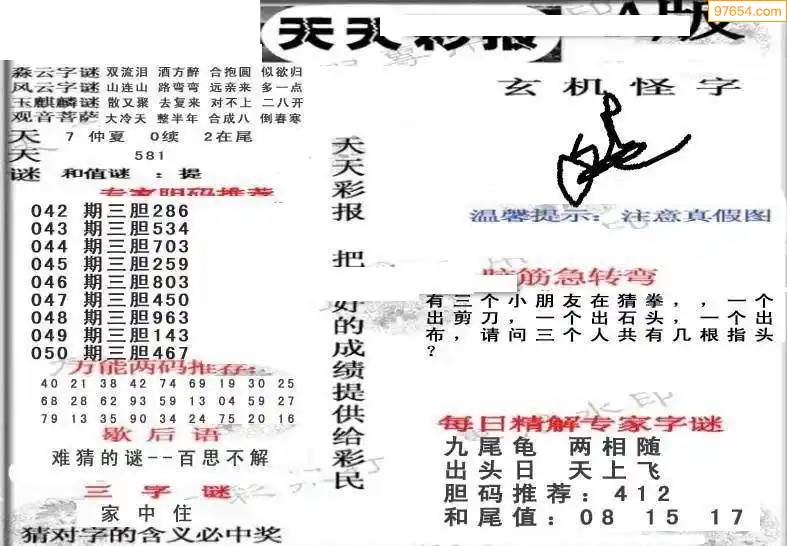 97654.com
天天彩报 A版
森云字谜 双流泪 酒方醉 合抱圆 似欲归
风云字谜 山连山 路弯弯 远亲来 多一点
玉麒麟谜 散又聚 去复来 对不上 二八开
观音菩萨 大冷天 整半年 合成八 倒春寒
天 7 仲夏 0续 2在尾
天 581
谜 和值谜 : 提
专家胆码推荐
042 期三胆286
043 期三胆534
044 期三胆703
045 期三胆259
046 期三胆803
047 期三胆450
048 期三胆963
049 期三胆143
050 期三胆467
万能两码推荐:
40 21 38 42 74 69 19 30 25
68 28 62 93 59 13 04 59 27
79 13 35 90 34 24 75 20 16
歇后语
难猜的谜--百思不解
三字谜
家中住
猜对字的含义必中奖
天天彩报 把好的成绩提供给彩民
玄机怪字
温馨提示: 注意真假图
脑筋急转弯
有三个小朋友在猜拳,,一个
出剪刀,一个出石头,一个出
布,请问三个人共有几根指头
?
每日精解专家字谜
九尾龟 两相随
出头日 天上飞
胆码推荐: 412
和尾值: 08 15 17